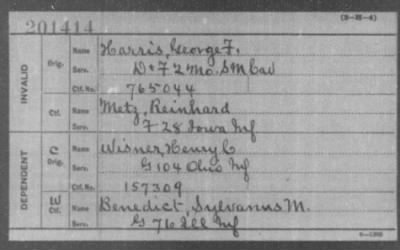 (3-III-4)
201414
INVALID
Orig.
Name Harris, George F.
Serv. D & F 2 Mo. S M Cav
Ctf. No. 765044
Ctf.
Name Metz, Reinhard
Serv. F 28 Iowa Inf
DEPENDENT
C
Orig.
Name Wisner, Henry C
Serv. G 104 Ohio Inf
Ctf. No. 157309
W
Ctf.
Name Benedict, Sylvanus M.
Serv. G 76 Ill Inf